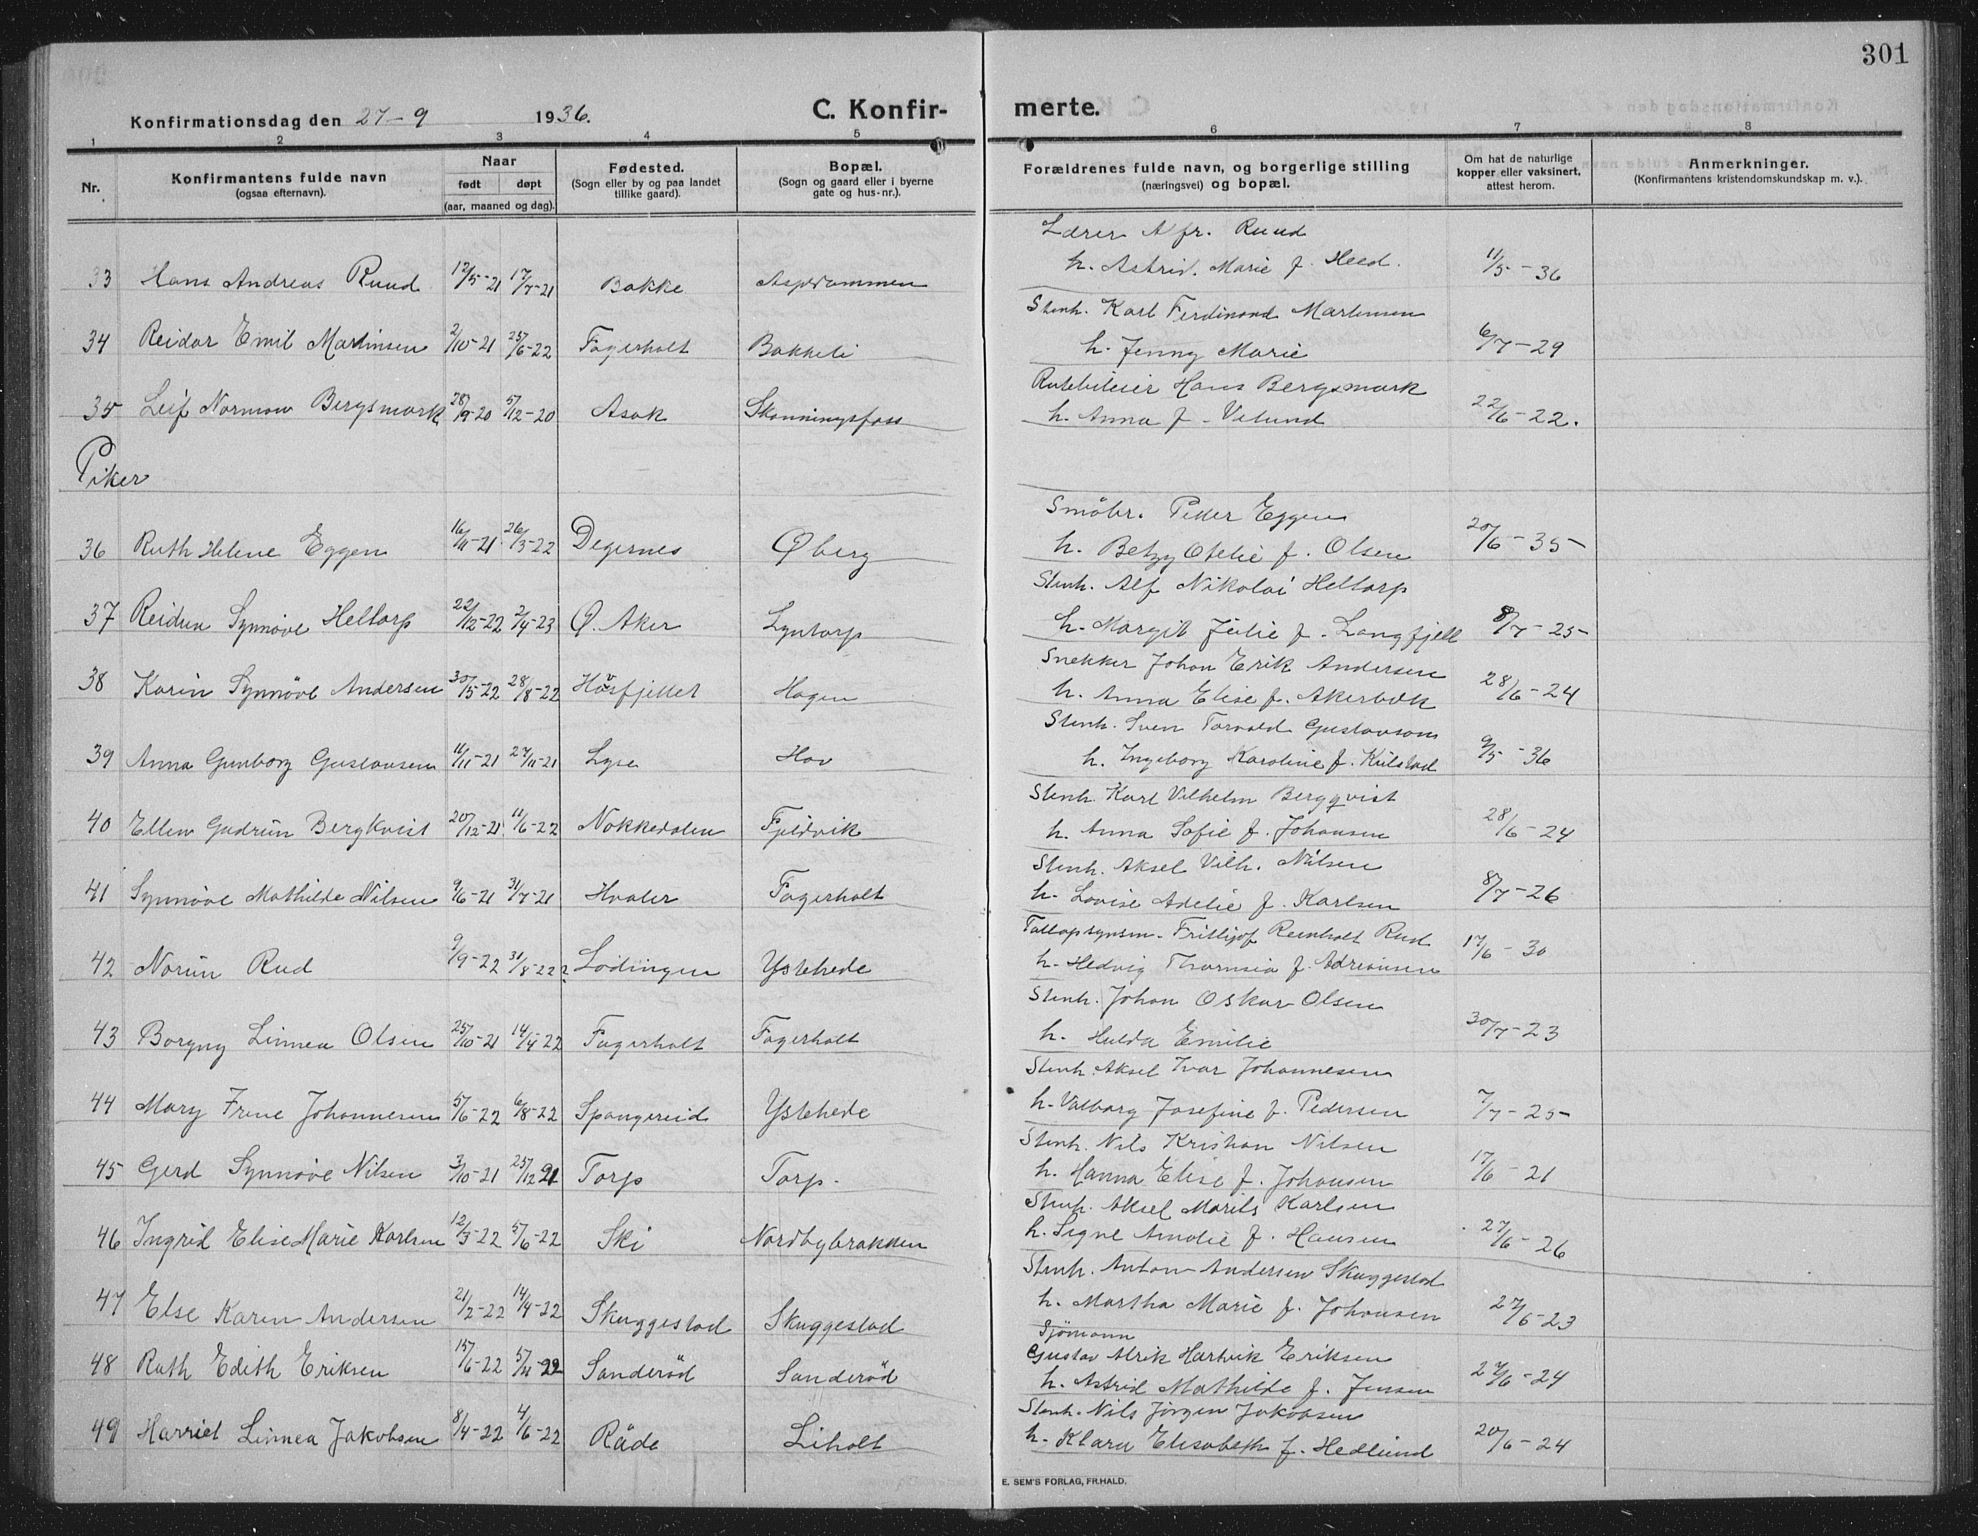 301
Konfirmationsdag den 27-9 1936.
C. Konfir-
merte.
1 2 3 4 5 6 7 8
Nr.
Konfirmantens fulde navn
(ogsaa efternavn).
Naar
født døpt
(aar, maaned og dag).
Fødested.
(Sogn eller by og paa landet
tillike gaard).
Bopæl.
(Sogn og gaard eller i byerne
gate og hus-nr.).
Forældrenes fulde navn, og borgerlige stilling
(næringsvei) og bopæl.
Om hat de naturlige
kopper eller vaksinert,
attest herom.
Anmerkninger.
(Konfirmantens kristendomskundskap m. v.).
Lærer Alfr. Ruud
33 Hans Andreas Ruud 12/5-21 17/7-21 Bakke Aspedammen h. Astrid. Marie f. Heed. 11/5-36
Stenh. Karl Ferdinand Martinsen
34 Reidar Emil Martinsen 2/10-21 25/6-22 Fagerholt Bakkeli h. Jenny Marie 6/7-29
Rutebileier Hans Bergsmark
35 Leif Norman Bergsmark 28/9-20 5/12-20 Asak Skonningsfoss h. Anna f. 22/6-22.
Piker
Smøbr. Peder Eggen
36 Ruth Helene Eggen 16/11-21 26/3-22 Degernes Øberg h. Betzy Otelie f. Olsen 20/6-35
Stenh. Alf Nikolai Heltorp
37 Reidun Synnøve Heltorp 22/12-22 2/4-23 Ø. Aker Lyntorp h. Margit Julie f. Langfjell 8/7-25
Snekker Johan Erik Andersen
38 Karin Synnøve Andersen 30/5-22 28/8-22 Høvsfjellet Hagen h. Anna Elise f. Akerbæk 28/6-24
Stenh. Sven Torvald Gustavson
39 Anna Gunborg Gustavsen 11/11-21 27/11-21 Lyse Hov h. Ingeborg Karoline f. Kulstad 9/5-36
Stenh. Karl Vilhelm Bergqvist
40 Ellen Gudrun Bergkvist 20/12-21 11/6-22 Nokkedalen Fjeldvik h. Anna Sofie f. Johansen 28/6-24
Stenh. Aksel Vilh. Nilsen
41 Synnøve Mathilde Nilsen 9/6-21 31/7-21 Hvaler Fagerholt h. Lovise Adelie f. Karlsen 8/7-26
Tollopsynsm. Frithjof Reinholt Rud
42 Norun Rud 9/9-22 31/8-22 ? Lødingen Ystehede h. Hedvig f. Adriansen 17/6-30
Stenh. Johan Oskar Olsen
43 Borgny Linnea Olsen 25/10-21 14/4-22 Fagerholt Fagerholt h. Hulda Emilie 30/7-23
Stenh. Aksel Ivar Johannesen
44 Mary Irene Johannesen 5/6-22 6/8-22 Spangereid Ystehede h. Valborg Josefine f. Pedersen 7/7-25
Stenh. Nils Kristian Nilsen
45 Gerd Synnøve Nilsen 3/10-21 25/12 21 Torp Torp. h. Hanna Elise f. Johansen 17/6-21
Stenh. Aksel Morits Karlsen
46 Ingrid Elise Marie Karlsen 12/3-22 5/6-22 Ski Nordbybrakken h. Signe Amalie f. Hansen 27/6-26
Stenh. Anton Andersen Skuggestad
47 Else Karen Andersen 21/2-22 14/4-22 Skuggestad Skuggestad h. Martha Marie f. Johansen 27/6-23
Sjømann
Gustav Alrik Hartvik Eriksen
48 Ruth Edith Eriksen 15/6-22 5/11-22 Sanderød Sanderød h. Astrid Mathilde f. Jensen 27/6-24
Stenh. Nils Jørgen Jakobsen
49 Harriet Linnea Jakobsen 8/4-22 4/6-22 Råde Liholt h. Klara Elisabeth f. Hedlund 20/6-24
E. SEM'S FORLAG, FR.HALD.